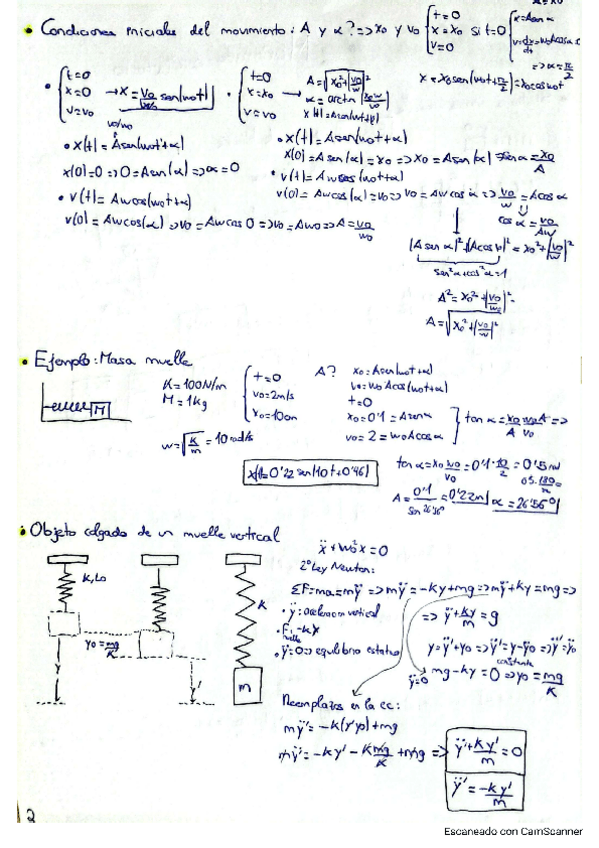 • Condiciones iniciales del movimiento: A y α? => x₀ y v₀ { t=0 x=x₀ v=0 si t=0 { x=A sen α v=dx/dt=w₀A cos α
=> α=π/2
x=x₀ sen(w₀t+π/2)=x₀ cos w₀t
• { t=0 x=0 v=v₀ → x=v₀/w₀ sen(w₀t)
• { t=0 x=x₀ v=v₀ → A=√(x₀²+(v₀/w)²) α=arctn(x₀w/v₀) x(t)=A sen(w₀t+α)
v₀/w₀
• x(t)=A sen(w₀t+α)
x(0)=0 => 0=A sen(α) => α=0
• v(t)=Aw cos(w₀t+α)
v(0)=Aw cos(α) => v₀=Aw cos 0 => v₀=Aw₀ => A=v₀/w₀
• x(t)=A sen(w₀t+α)
x(0)=A sen(α)=x₀ => x₀=A sen(α) sen α=x₀/A
• v(t)=Aw cos(w₀t+α)
v(0)=Aw cos(α)=v₀ => v₀=Aw cos α => v₀/w=A cos α
cos α=v₀/Aw
(A sen α)²+(A cos α)²=x₀²+(v₀/w)²
sen²α+cos²α=1
A²=x₀²+(v₀/w₀)²
A=√(x₀²+(v₀/w)²)
• Ejemplo: Masa muelle
M
K=100N/m
M=1kg
w=√(K/m)=10rad/s
{ t=0 v₀=2m/s x₀=10cm
A? x₀=A sen(w₀t+α)
v₀=w₀A cos(w₀t+α)
t=0
x₀=0'1=A sen α
v₀=2=w₀A cos α
} tan α=x₀/A w₀A/v₀ =>
tan α=x₀ w₀/v₀=0'1·10/2=0'5
A=0'1/sen 26'56=0'22m α=26'56º
x(t)=0'22 sen(10t+0'46)
• Objeto colgado de un muelle vertical
K, L₀
y₀=mg/K
y
y'
K
m
ÿ+w₀²x=0
2ª Ley Newton:
ΣF=ma=mÿ => mÿ=-ky+mg => mÿ+ky=mg =>
• ÿ: aceleracion vertical
• F muelle=-ky
• ÿ=0 => equilibrio estatico
=> ÿ+ky/m=g
y=y'+y₀ => ÿ'=ÿ-ÿ₀ => ÿ'=ÿ
constante
ÿ=0 mg-ky=0 => y₀=mg/K
Reemplazos en la ec:
mÿ'=-k(y'+y₀)+mg
mÿ'=-ky'-K mg/K+mg => ÿ'+ky'/m=0
ÿ'=-ky'/m
Escaneado con CamScanner